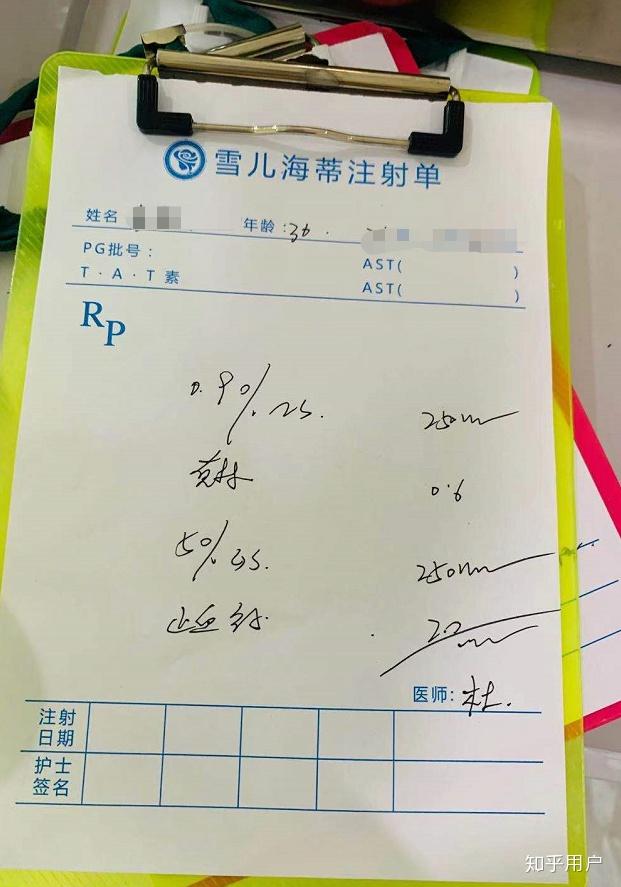 雪儿海蒂注射单
姓名 年龄:36.
PG批号: AST( )
T·A·T 素 AST( )
RP
0.9% NS. 250ml
克林 0.6
5% GS. 250ml
止血 20ml
医师: 杜.
注射日期
护士签名
知乎用户